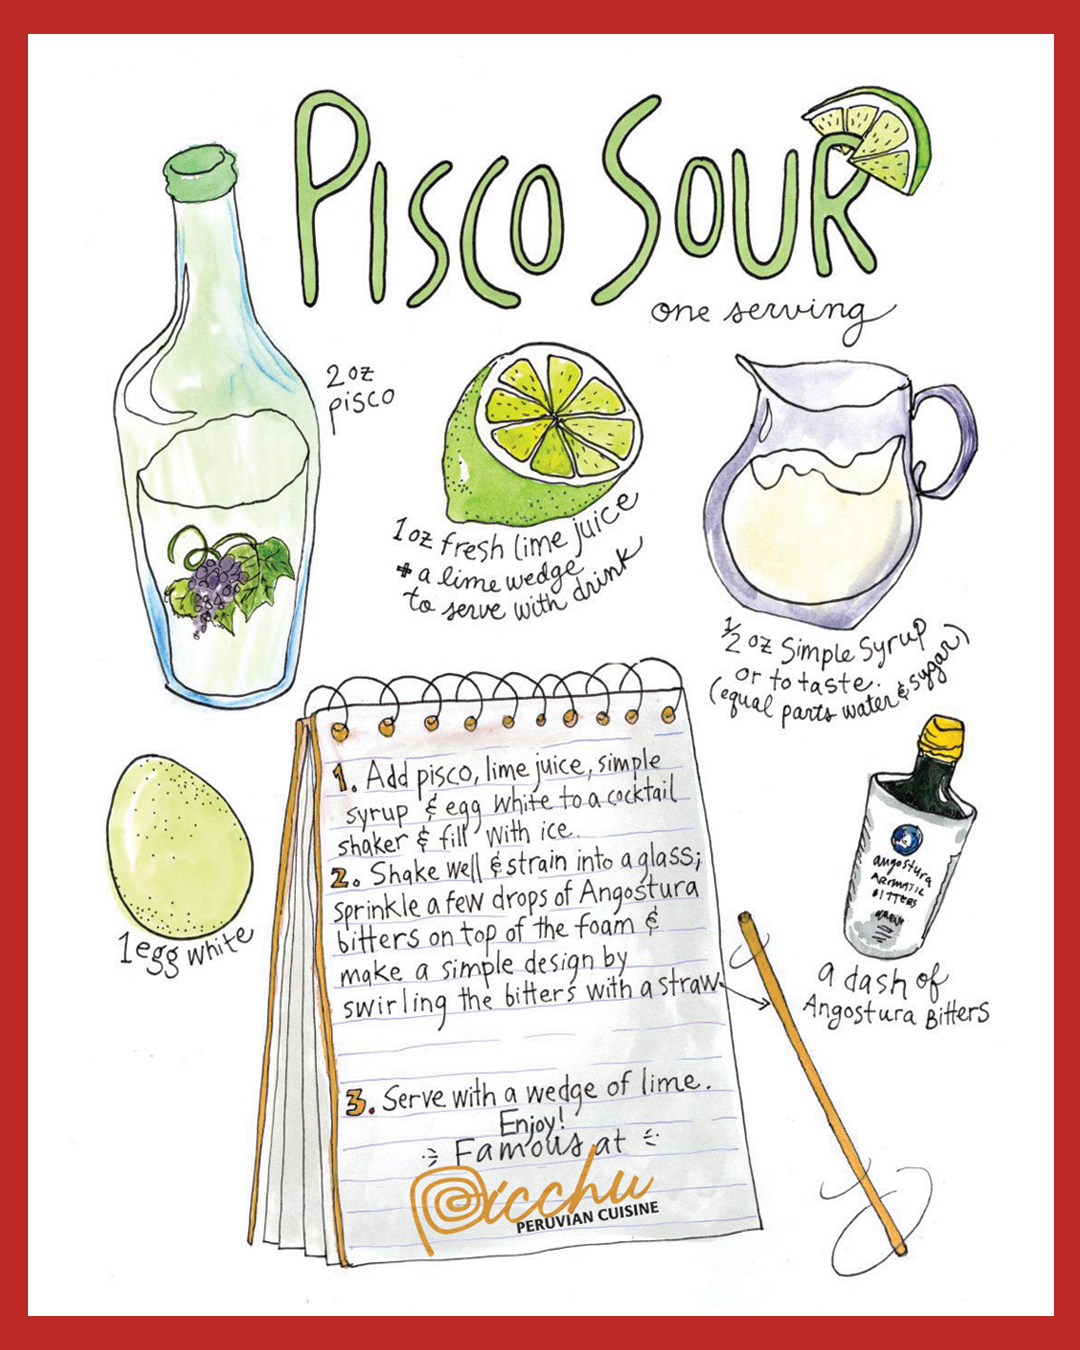 PISCO SOUR
one serving
2 oz
pisco
1 oz fresh lime juice
+ a lime wedge
to serve with drink
1/2 oz Simple Syrup
or to taste.
(equal parts water & sugar)
1 egg white
1. Add pisco, lime juice, simple
syrup & egg white to a cocktail
shaker & fill with ice.
2. Shake well & strain into a glass;
sprinkle a few drops of Angostura
bitters on top of the foam &
make a simple design by
swirling the bitters with a straw
3. Serve with a wedge of lime.
Enjoy!
Famous at
Picchu
PERUVIAN CUISINE
angostura
AROMATIC
BITTERS
a dash of
Angostura Bitters